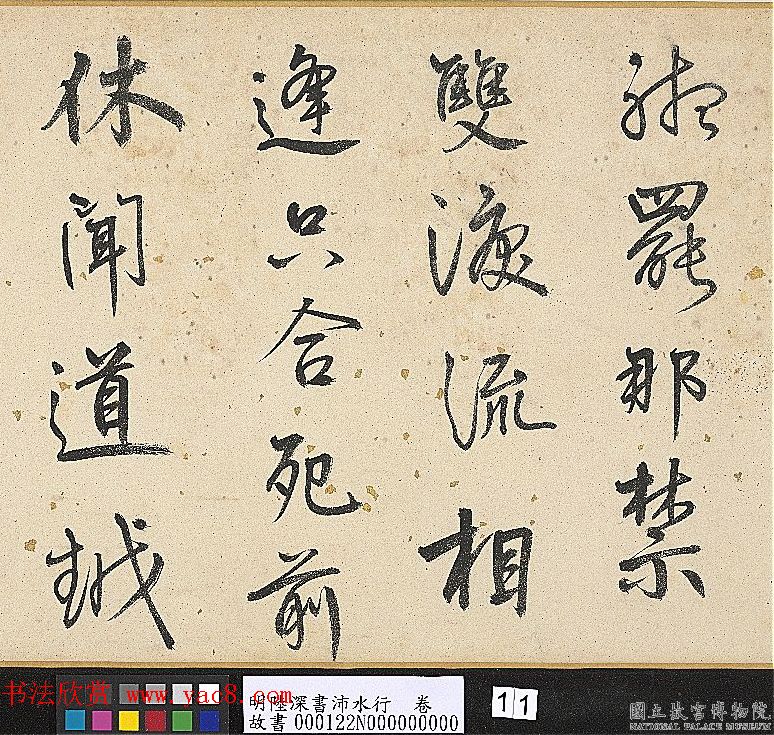 聽罷那禁
雙淚流相
逢只合死前
休聞道
书法欣赏 www.yac8.com
明陸深書沛水行 卷
故書000122N000000000
11
國立故宮博物院
NATIONAL PALACE MUSEUM